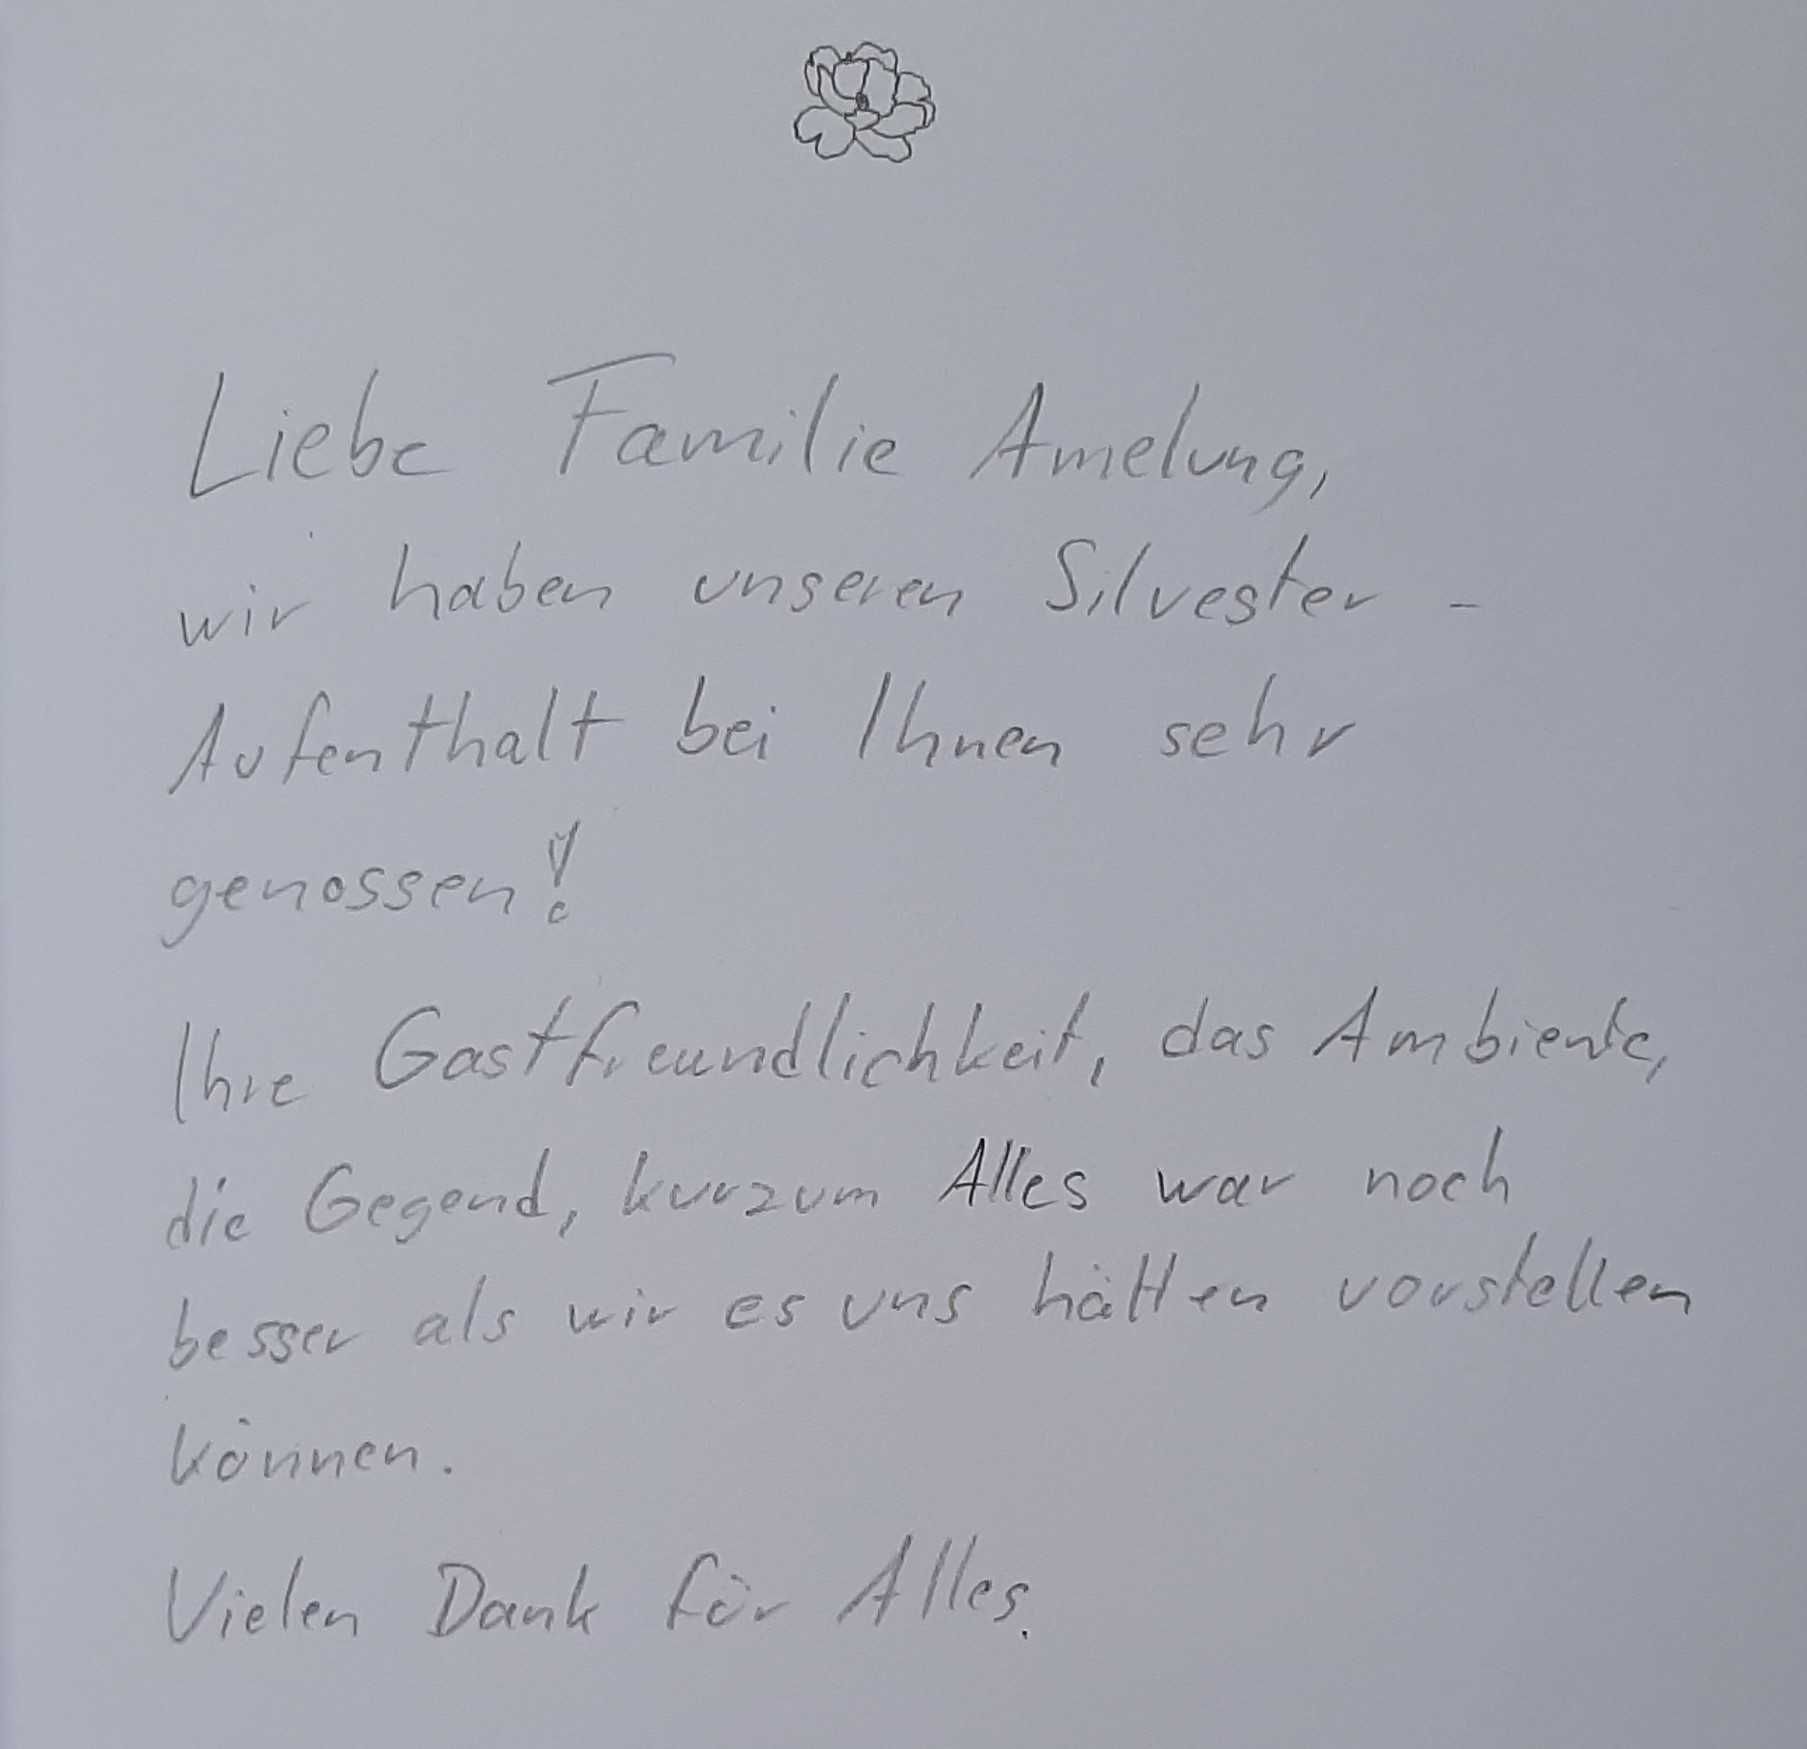 Liebe Familie Amelung,
wir haben unseren Silvester -
Aufenthalt bei Ihnen sehr
genossen!
Ihre Gastfreundlichkeit, das Ambiente,
die Gegend, kurzum Alles war noch
besser als wir es uns hätten vorstellen
können.
Vielen Dank für Alles.